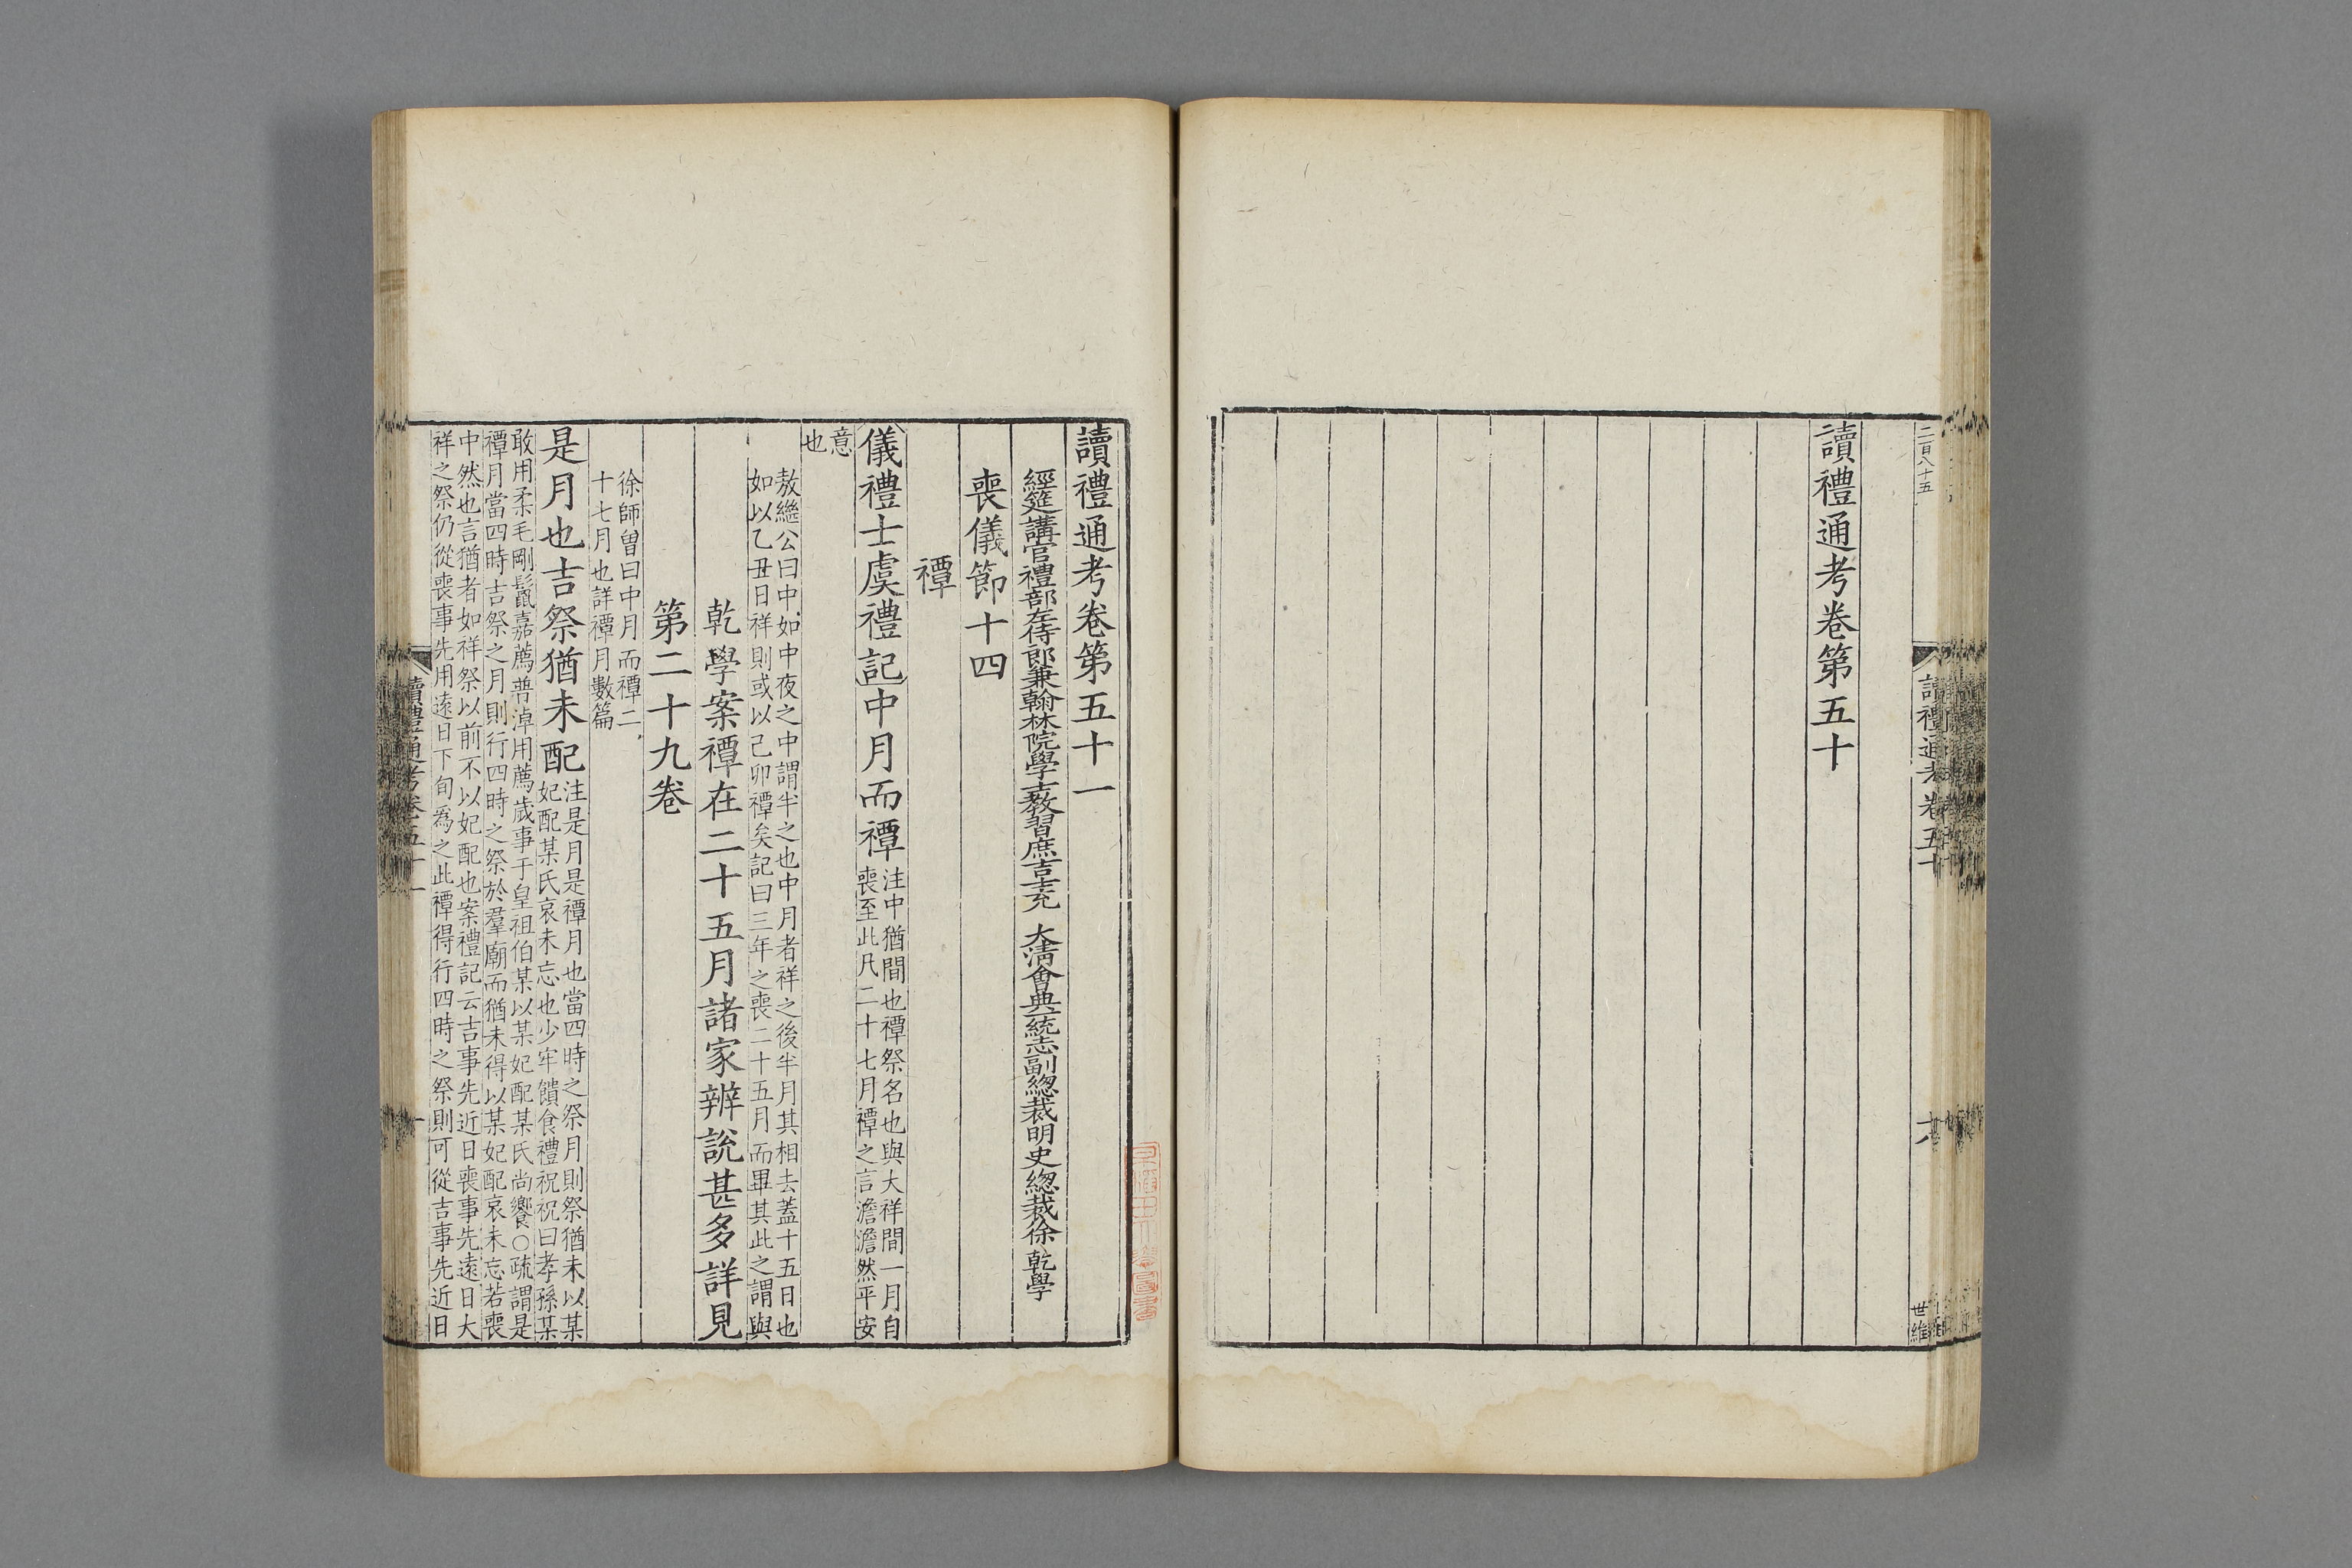 二百八十五
讀禮通考卷五十
六
世維
讀禮通考卷第五十
讀禮通考卷第五十一
經筵講官禮部左侍郎兼翰林院學士教習庶吉士充 大清會典一統志副總裁明史總裁徐乾學
喪儀節十四
禫
儀禮士虞禮記中月而禫
注中猶間也禫祭名也與大祥間一月自
喪至此凡二十七月禫之言澹澹然平安
意
也
敖繼公曰中如中夜之中謂半之也中月者祥之後半月其相去蓋十五日也
如以乙丑日祥則或以己卯禫矣記曰三年之喪二十五月而畢其此之謂與
乾學案禫在二十五月諸家辨說甚多詳見
第二十九卷
徐師曾曰中月而禫二
十七月也詳禫月數篇
是月也吉祭猶未配
注是月是禫月也當四時之祭月則祭猶未以某
妃配某氏哀未忘也少牢饋食禮祝祝曰孝孫某
敢用柔毛剛鬣嘉薦普淖用薦歲事于皇祖伯某以某妃配某氏尚饗○疏謂是
禫月當四時吉祭之月則行四時之祭於羣廟而猶未得以某妃配哀未忘若喪
中然也言猶者如祥祭以前不以妃配也案禮記云吉事先近日喪事先遠日大
祥之祭仍從喪事先用遠日下旬為之此禫得行四時之祭則可從吉事先近日
讀禮通考卷五十一
一